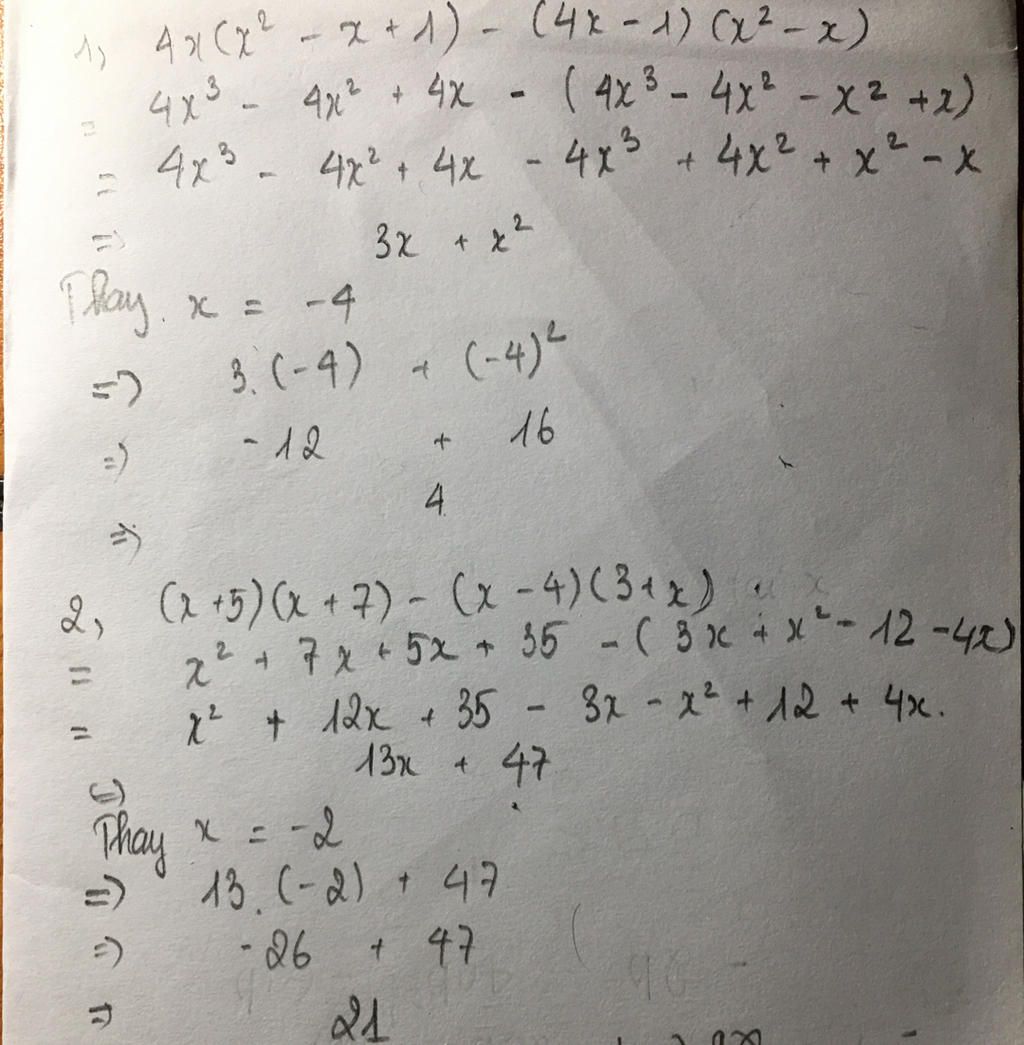 1, 4x(x² - x + 1) - (4x - 1)(x² - x)
= 4x³ - 4x² + 4x - (4x³ - 4x² - x² + x)
= 4x³ - 4x² + 4x - 4x³ + 4x² + x² - x
=> 3x + x²
Thay x = -4
=> 3.(-4) + (-4)²
=> -12 + 16
=> 4
2, (x+5)(x+7) - (x-4)(3+x)
= x² + 7x + 5x + 35 - (3x + x² - 12 - 4x)
= x² + 12x + 35 - 3x - x² + 12 + 4x.
=> 13x + 47
Thay x = -2
=> 13.(-2) + 47
=> -26 + 47
=> 21